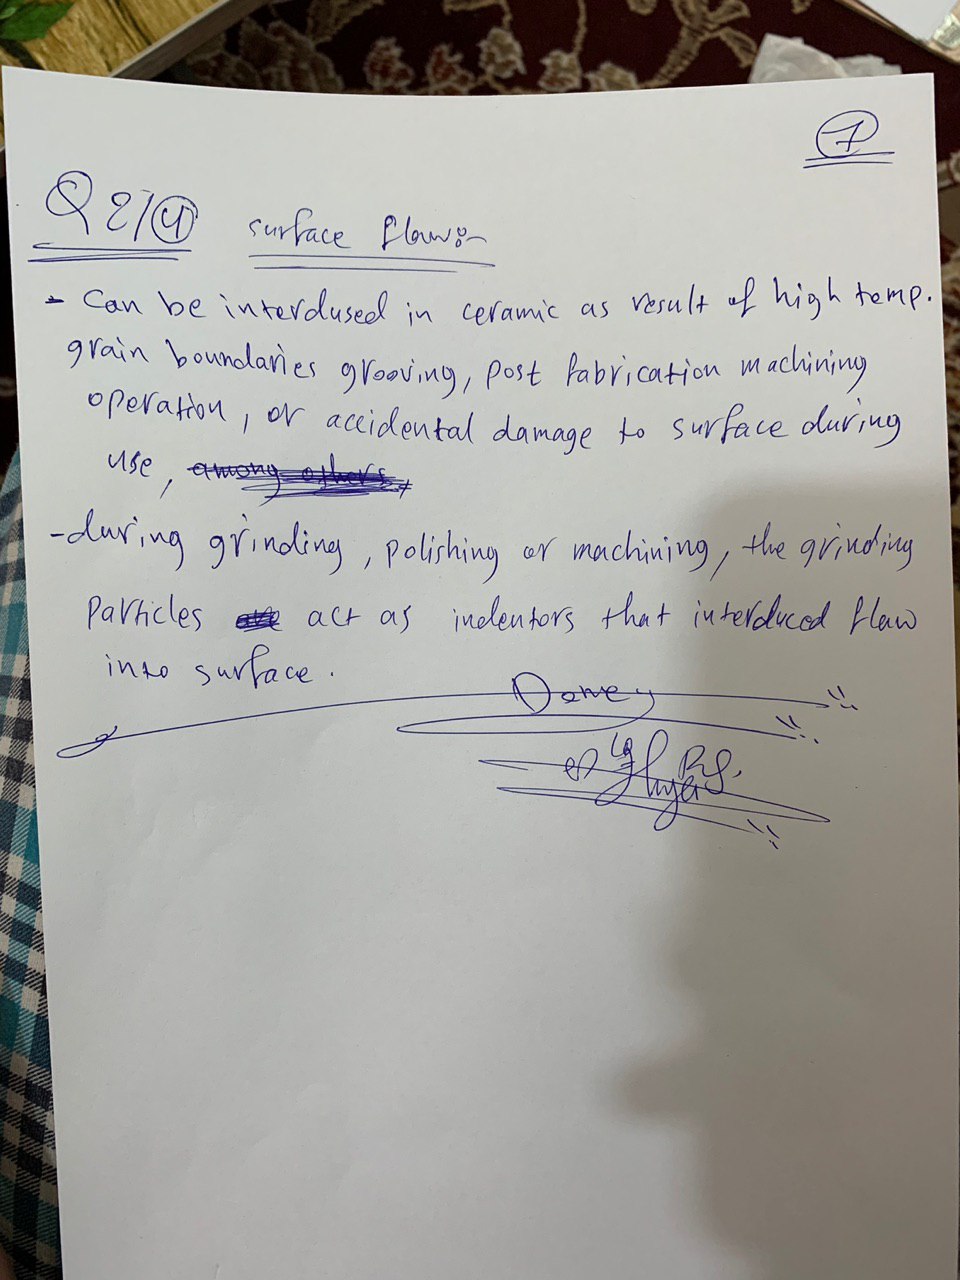 7
Q2/4 surface flaw:-
- Can be interdused in ceramic as result of high temp.
grain boundaries grooving, post fabrication machining
operation, or accidental damage to surface during
use, among others,
-during grinding, polishing or machining, the grinding
particles are act as indentors that interduced flaw
into surface.